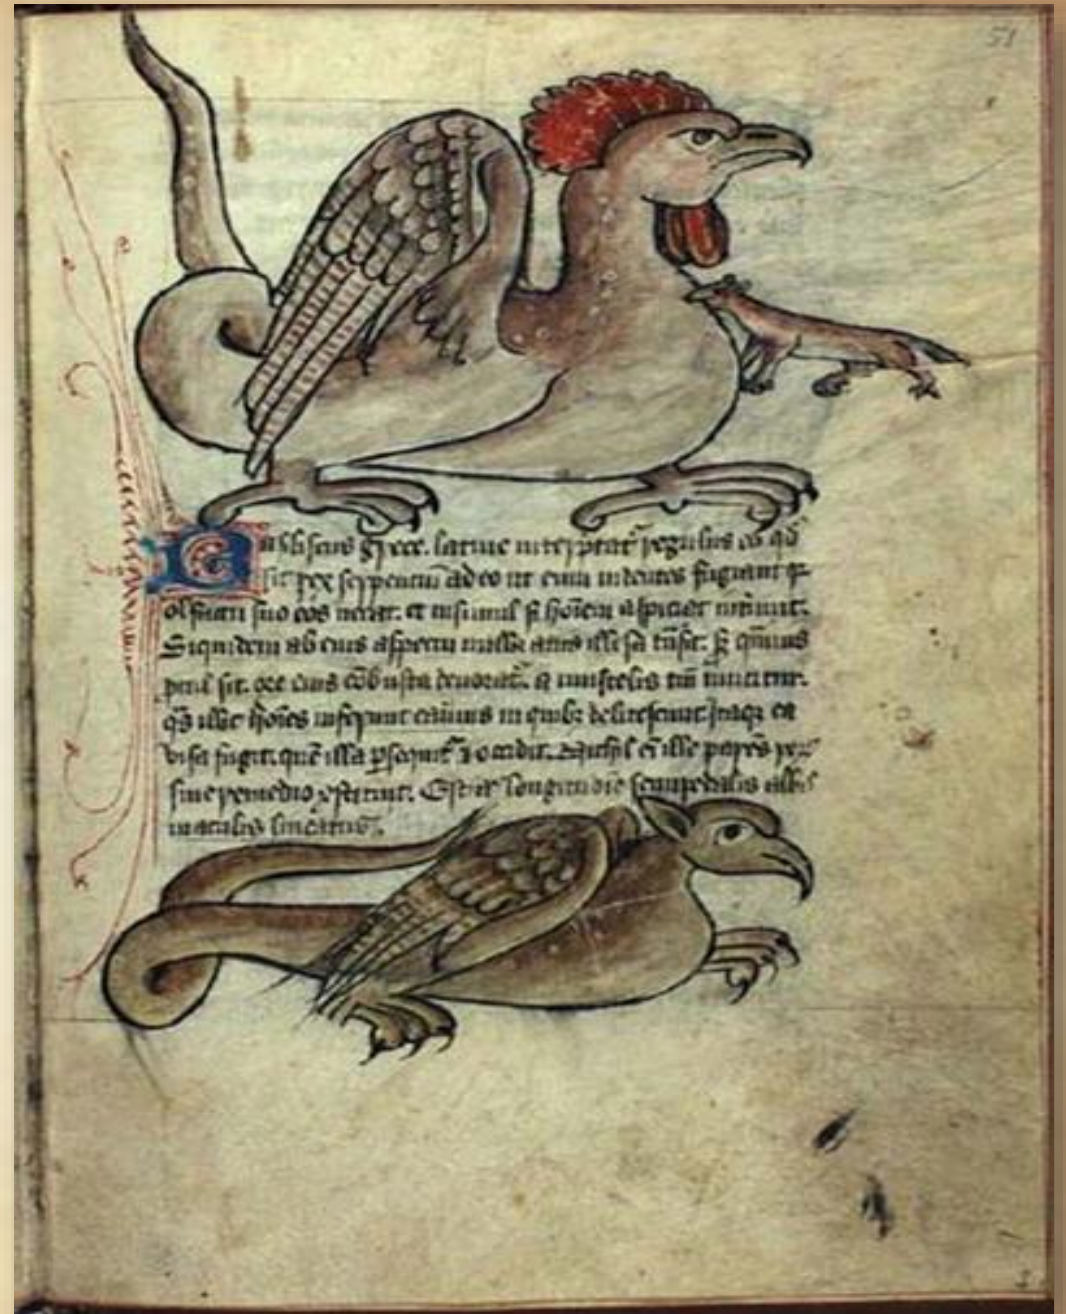 51
Basiliscus grece. latine interptat̃ regulus eo qd̃
sit rex serpentiũ adeo ut eum uidentes fugiant q̃
olfactu suo eos necat. et insimul si hoiem aspiciat interimit.
Siquidem ab eius aspectu nulla auis illesa tñsit. sꝫ q̃muis
pcul sit. ore eius cõbusta deuorat̃. a mustelis tñ uincitur.
q̃s illic hoies inferunt cauernis in quibꝫ delitescunt Itaqꝫ ea
uisa fugit. quẽ illa psequit̃ ⁊ occidit. Nichil eñ ille parẽs reꝝ
sine remedio cstituit. Est longitudie semipedalis albis
maculis lineatus.